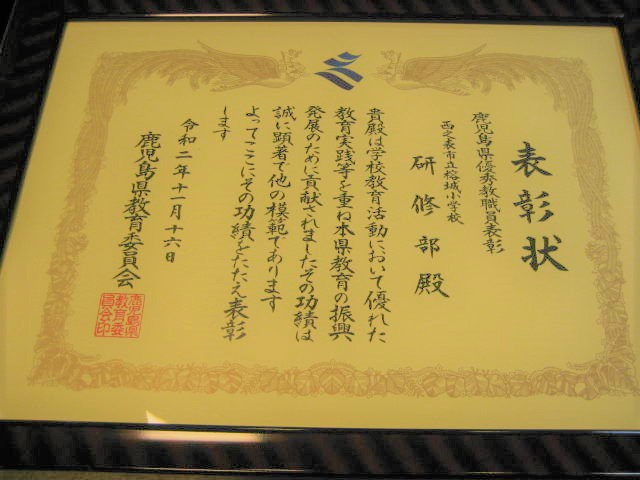 表彰状
鹿児島県優秀教職員表彰
西之表市立榕城小学校
研修部殿
貴殿は学校教育活動において優れた
教育実践等を重ね本県教育の振興
発展のために貢献されましたその功績は
誠に顕著で他の模範であります
よってここにその功績をたたえ表彰
します
令和二年十一月十六日
鹿児島県教育委員会
鹿児島県
教育委
員会印